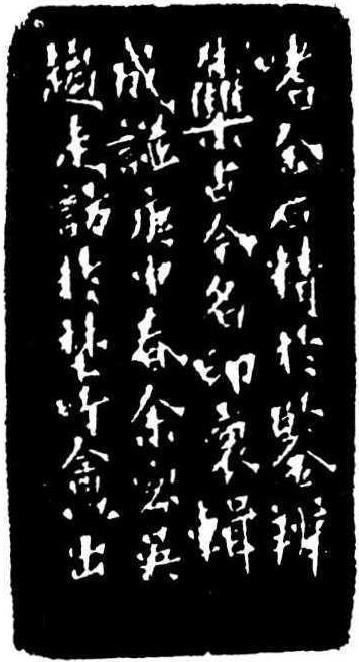 嗜金石精於鑒辨
集古今名印裒輯
成謚庚申春余客吳
趨走訪於楚竹盦出